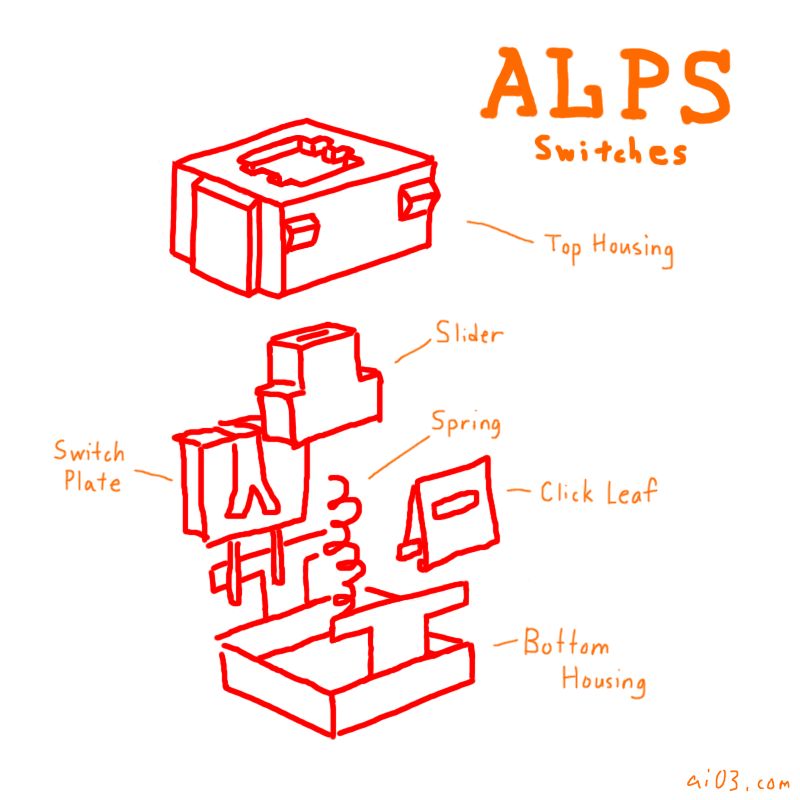 ALPS
Switches
Top Housing
Slider
Spring
Switch
Plate
Click Leaf
Bottom
Housing
ai03.com